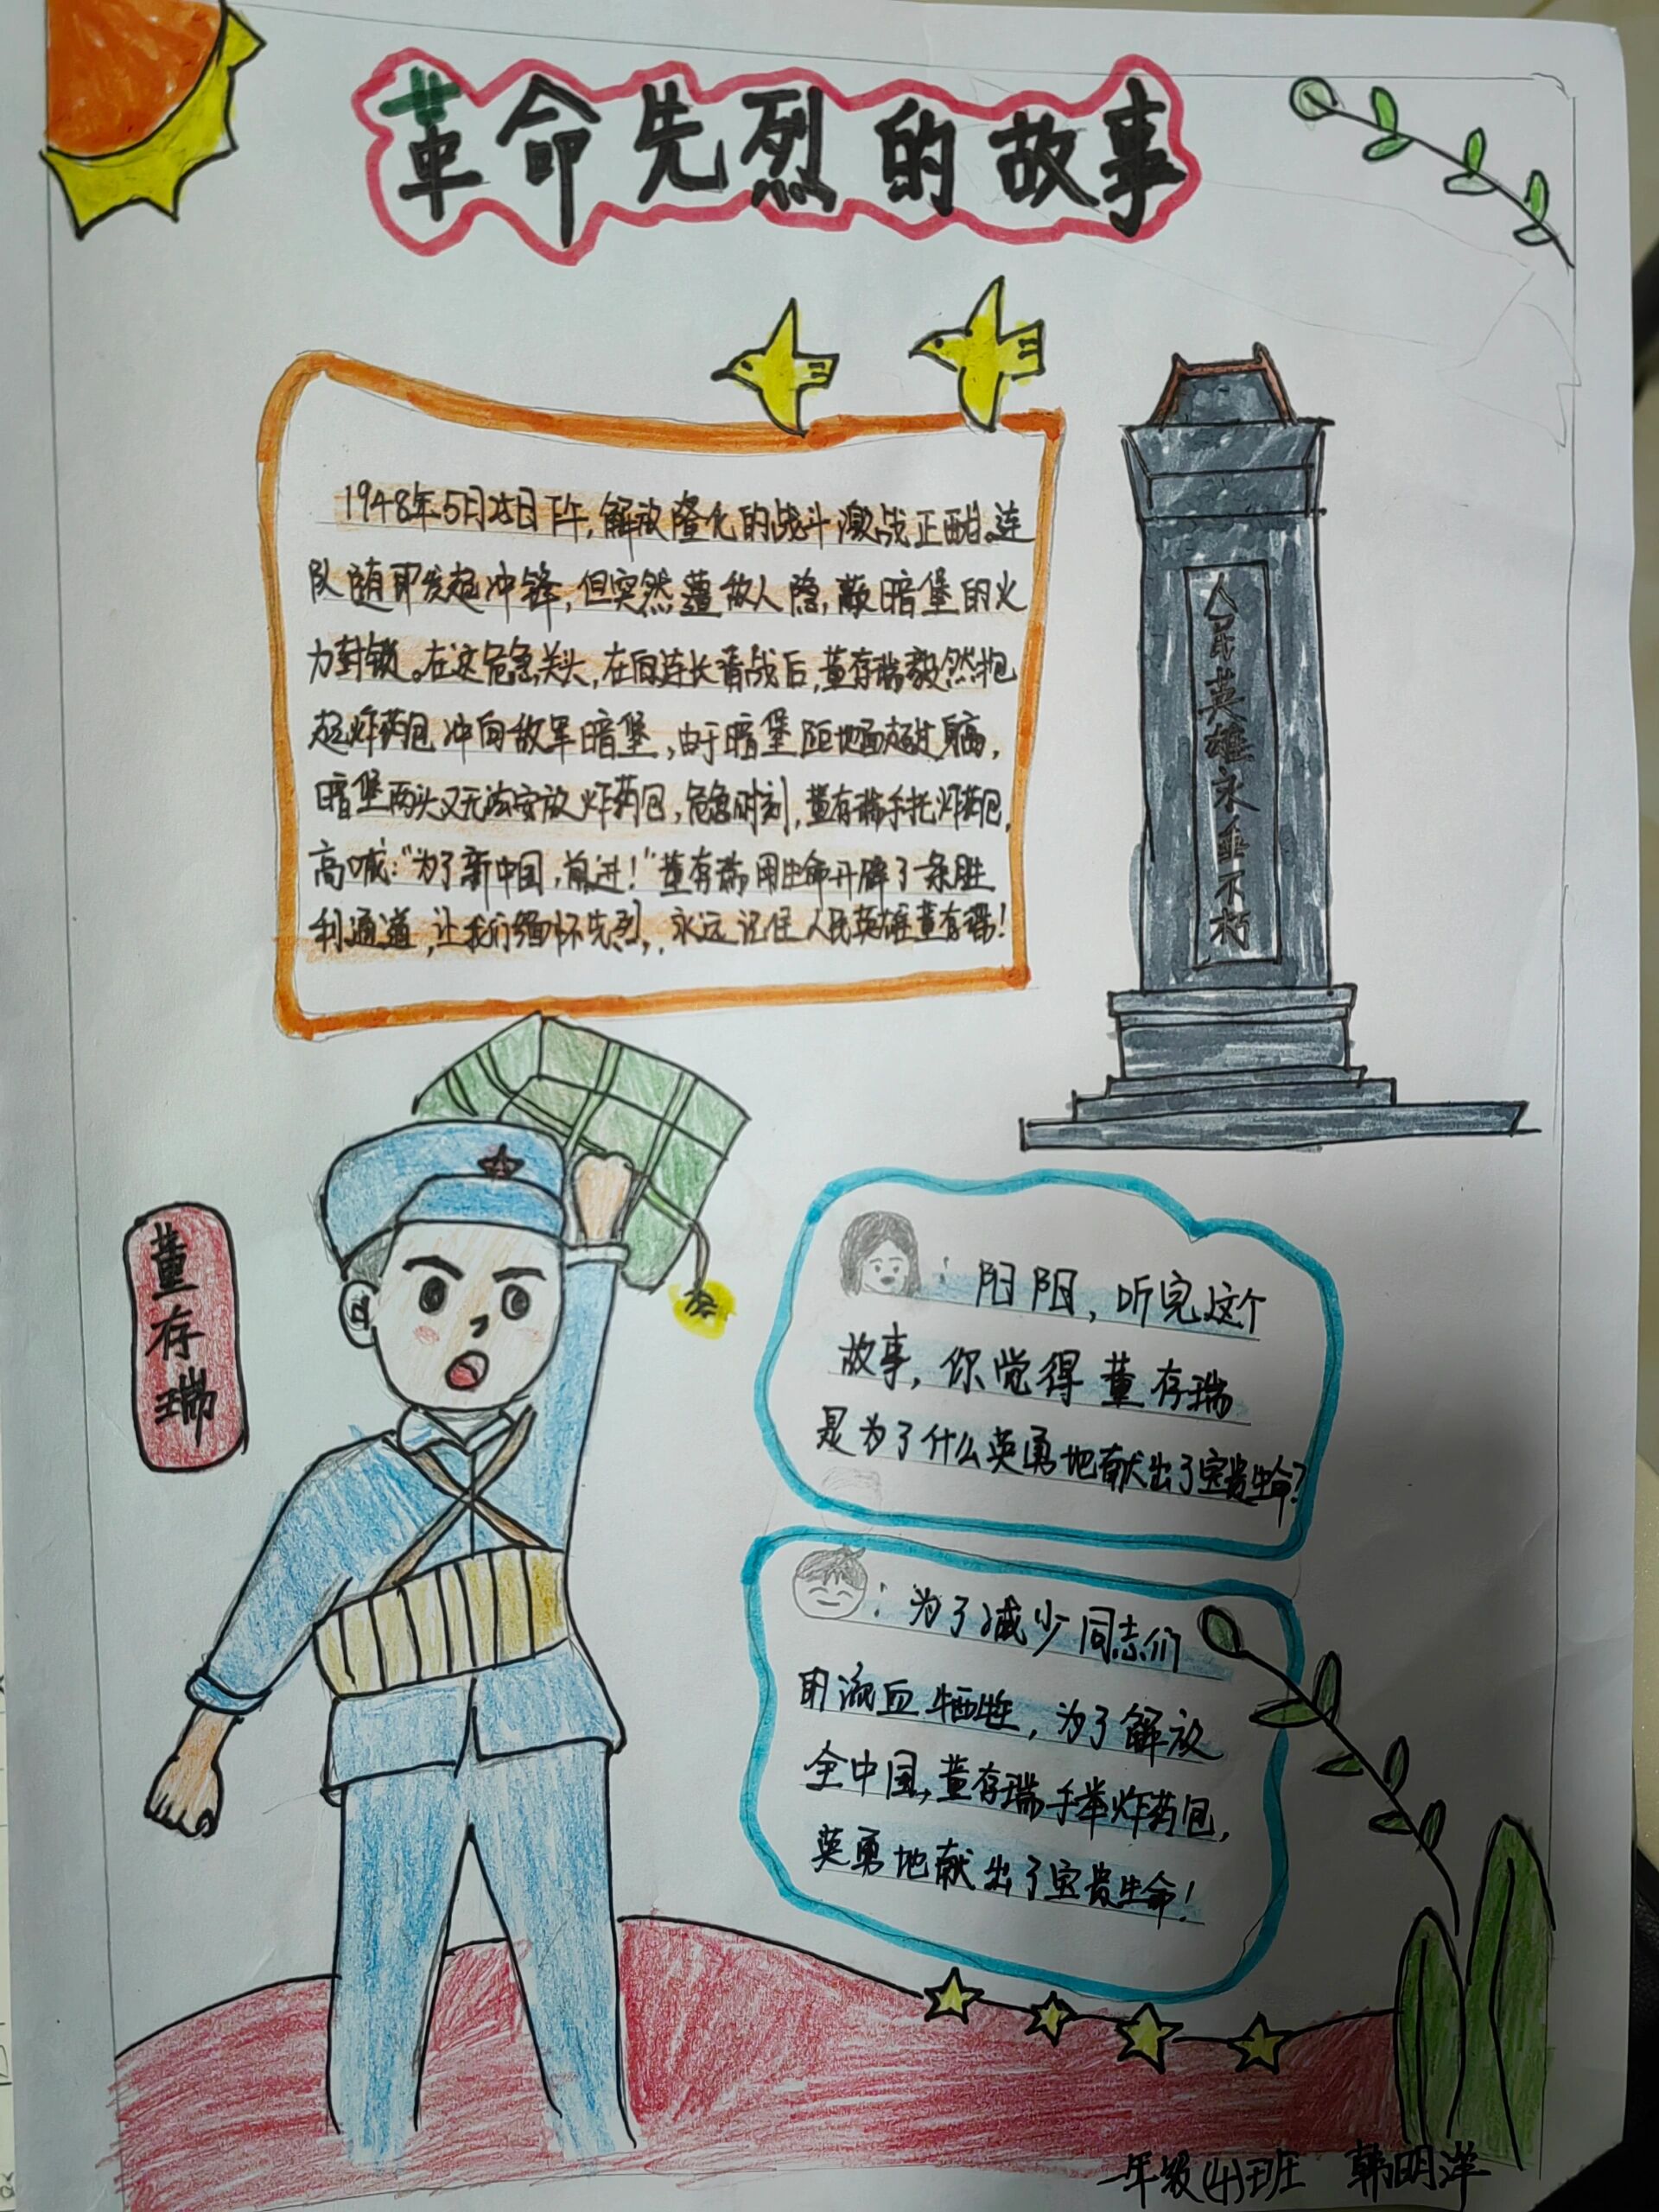 革命先烈的故事
1948年5月25日下午,解放隆化的战斗激战正酣。连
队随即发起冲锋,但突然遭敌人隐,蔽暗堡的火
力封锁。在这危急关头,在向连长请战后,董存瑞毅然抱
起炸药包冲向敌军暗堡,由于暗堡距地面超过身高,
暗堡两头又无法安放炸药包,危急时刻,董存瑞手托炸药包,
高喊:“为了新中国,前进!”董存瑞用生命开辟了一条胜
利通道,让我们缅怀先烈,永远记住人民英雄董存瑞!
人民英雄永垂不朽
董存瑞
:阳阳,听完这个
故事,你觉得董存瑞
是为了什么英勇地献出了宝贵生命?
:为了减少同志们
用流血牺牲,为了解放
全中国,董存瑞手举炸药包,
英勇地献出了宝贵生命!
一年级(4)班 韩明洋